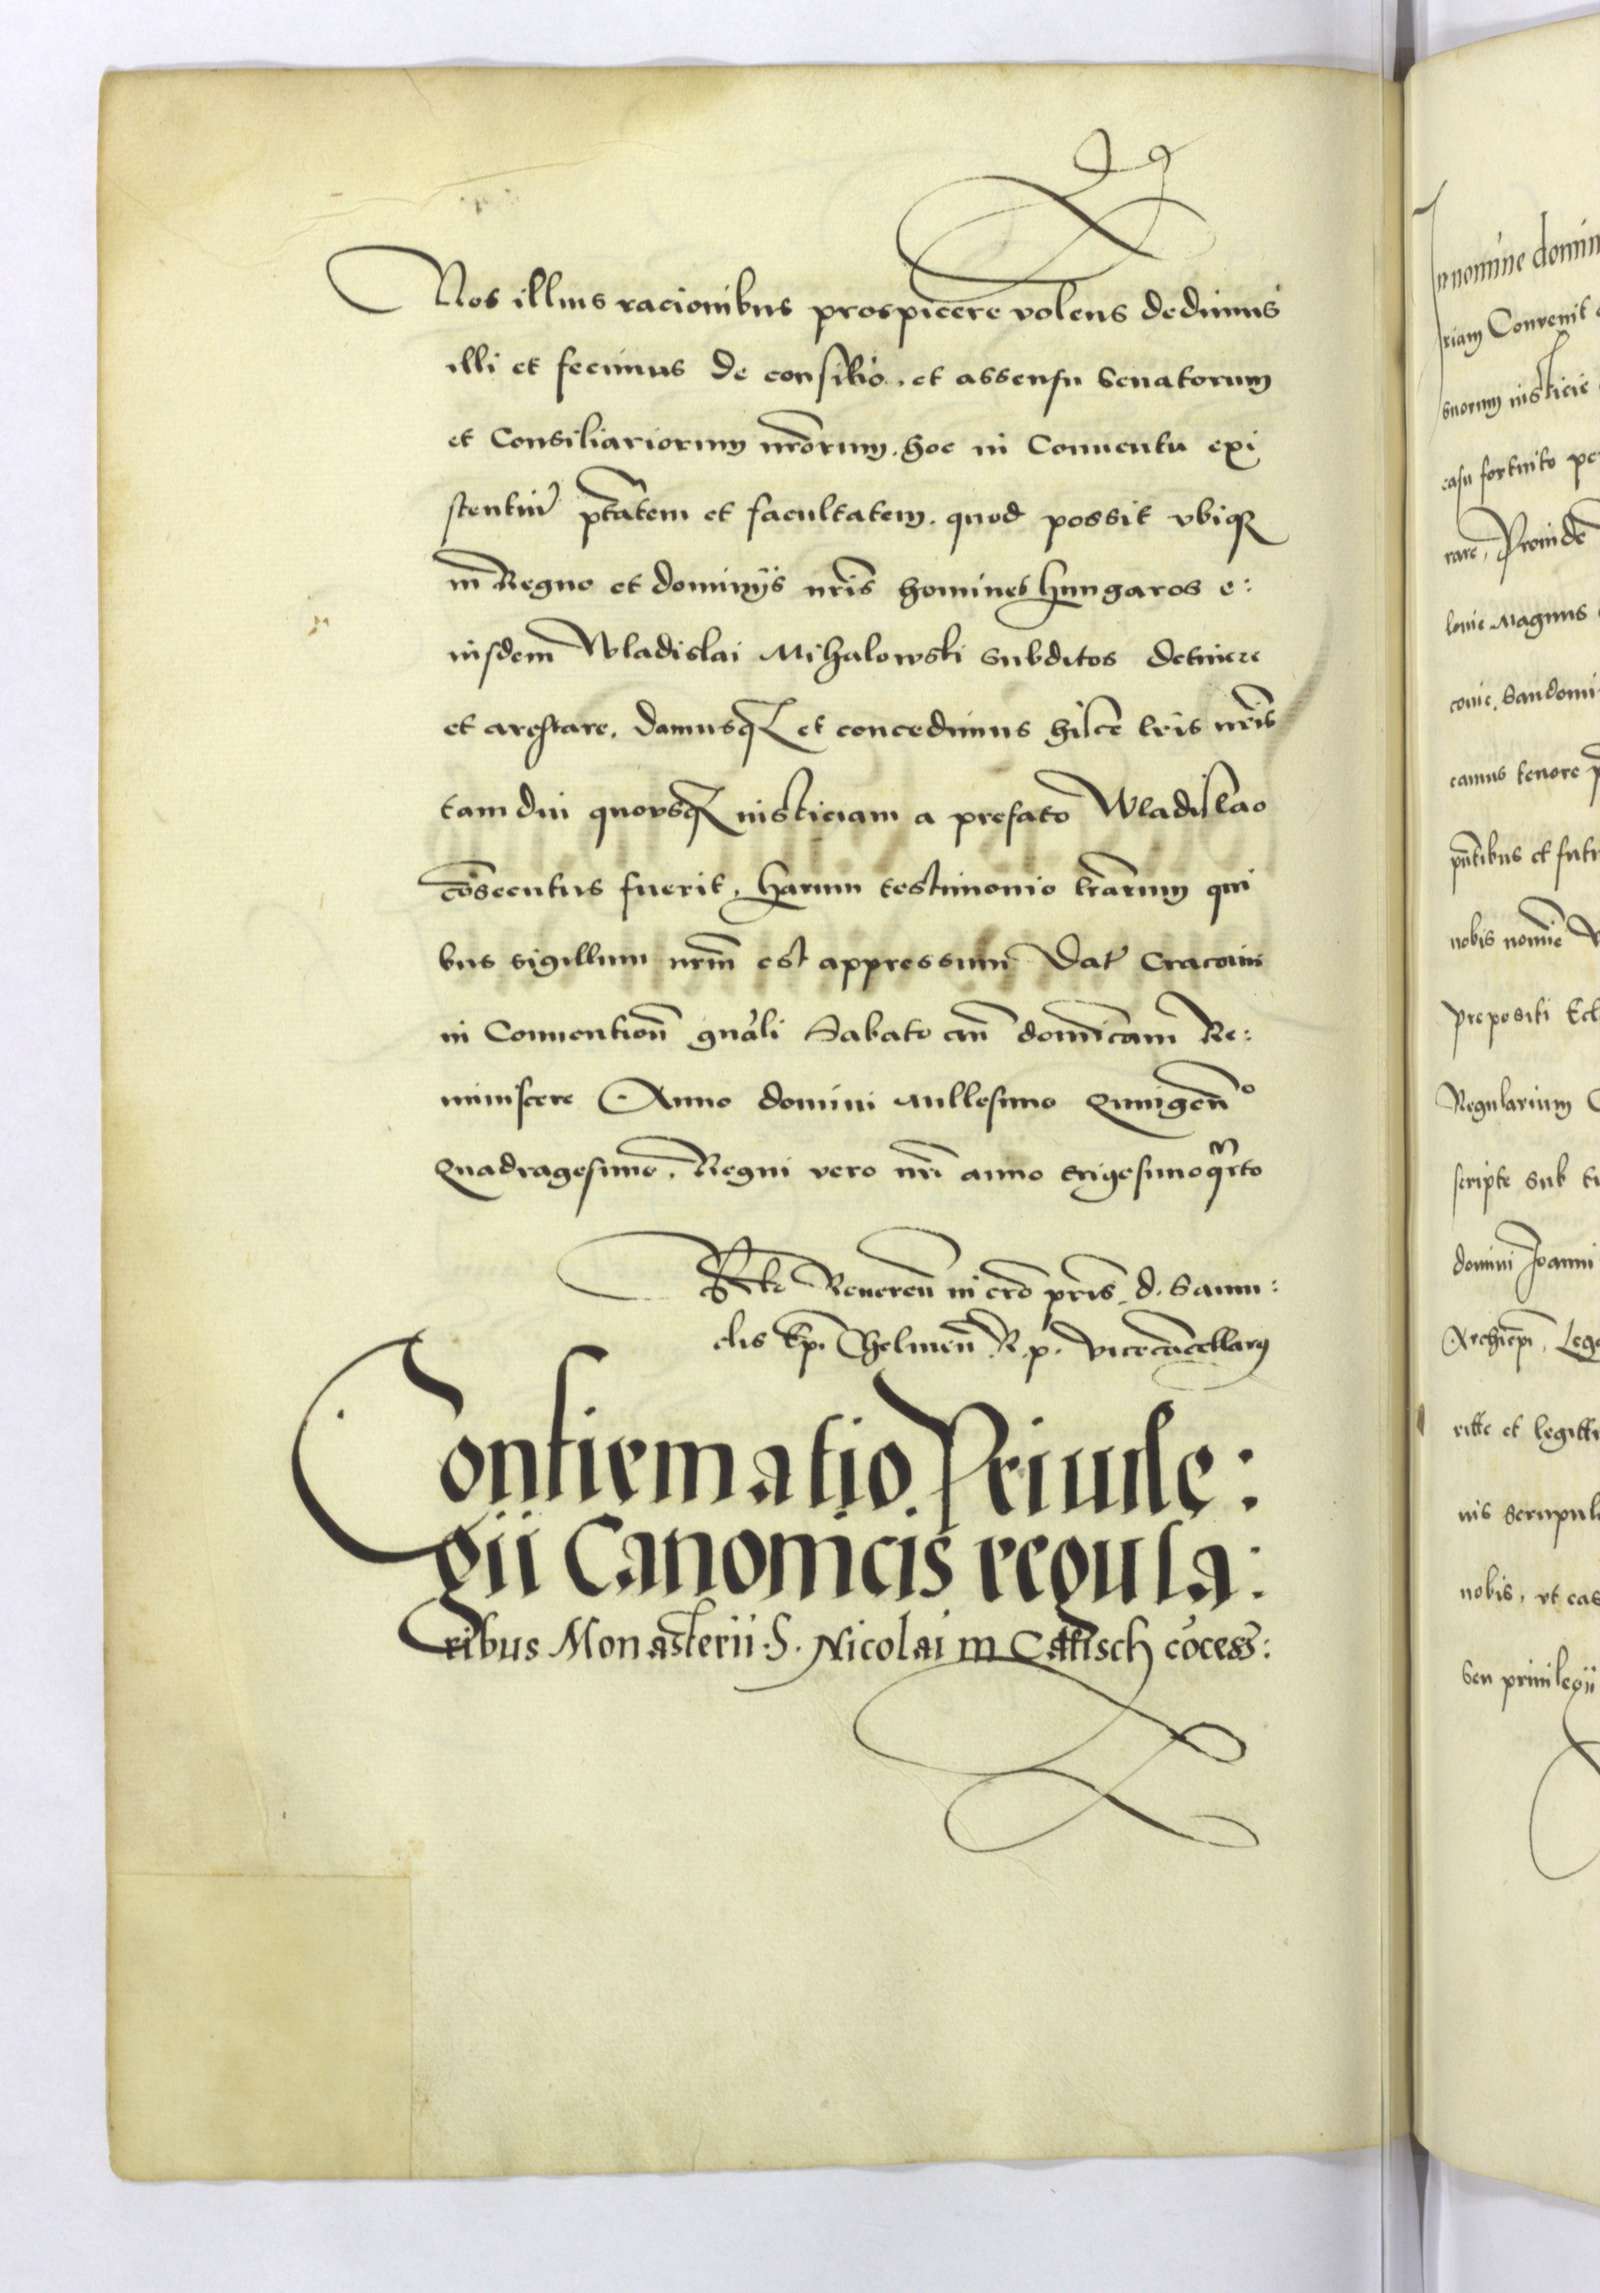 Nos illius racionibus prospicere volens dedimus
illi et fecimus de consilio, et assensu Senatorum
et Consiliariorum nrorum, hoc in Conuentu exi
stentiu ptatem et facultatem. quod possit vbiq
in Regno et dominijs nris homines hungaros e:
iusdem Wladislai Mihalowski subditos detinere
et arestare. Damusq et concedimus hisce lris nris
tam diu quousq iusticiam a prefato Wladislao
cosecutus fuerit, harum testimonio lrarum qui
bus sigillum nrm est appressum Dat Cracouie
in Conuention gnali Sabato an dominicam Re:
miniscere Anno domini Millesimo Quingen°
Quadragesimo. Regni vero nri anno trigesimoqrto
Rlo Reueren in cro pris d. Samu:
elis Epi Chelmen R. p. vicecacellarij
Confirmatio Priuile:
gii Canonicis regula:
ribus Monasterii S. Nicolai in Calisch cocess:
In nomine domin
riam Convenit
suorum iusticie
casu fortuito pe
rare, Proinde
lonie Magnus
couie, Sandomi
camus tenore
pntibus et futu
nobis nomie
prepositi Ecl
Regularium
scripte sub ti
domini Joanni
Archiepi, Lega
ritte et legitti
uis scrupuli
nobis, vt cas
seu priuilegii